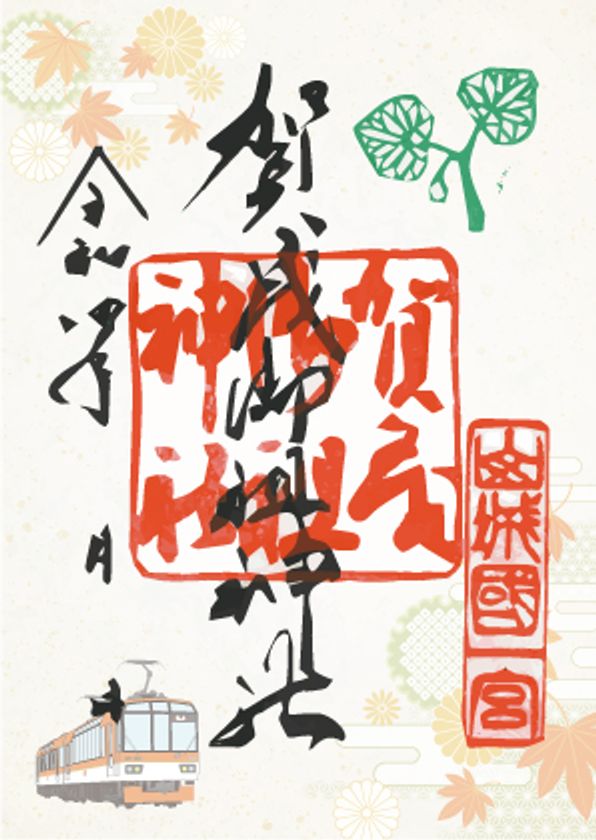 山城國一宮
賀茂御祖神社
賀茂
御祖
神社
令和四年 月 日